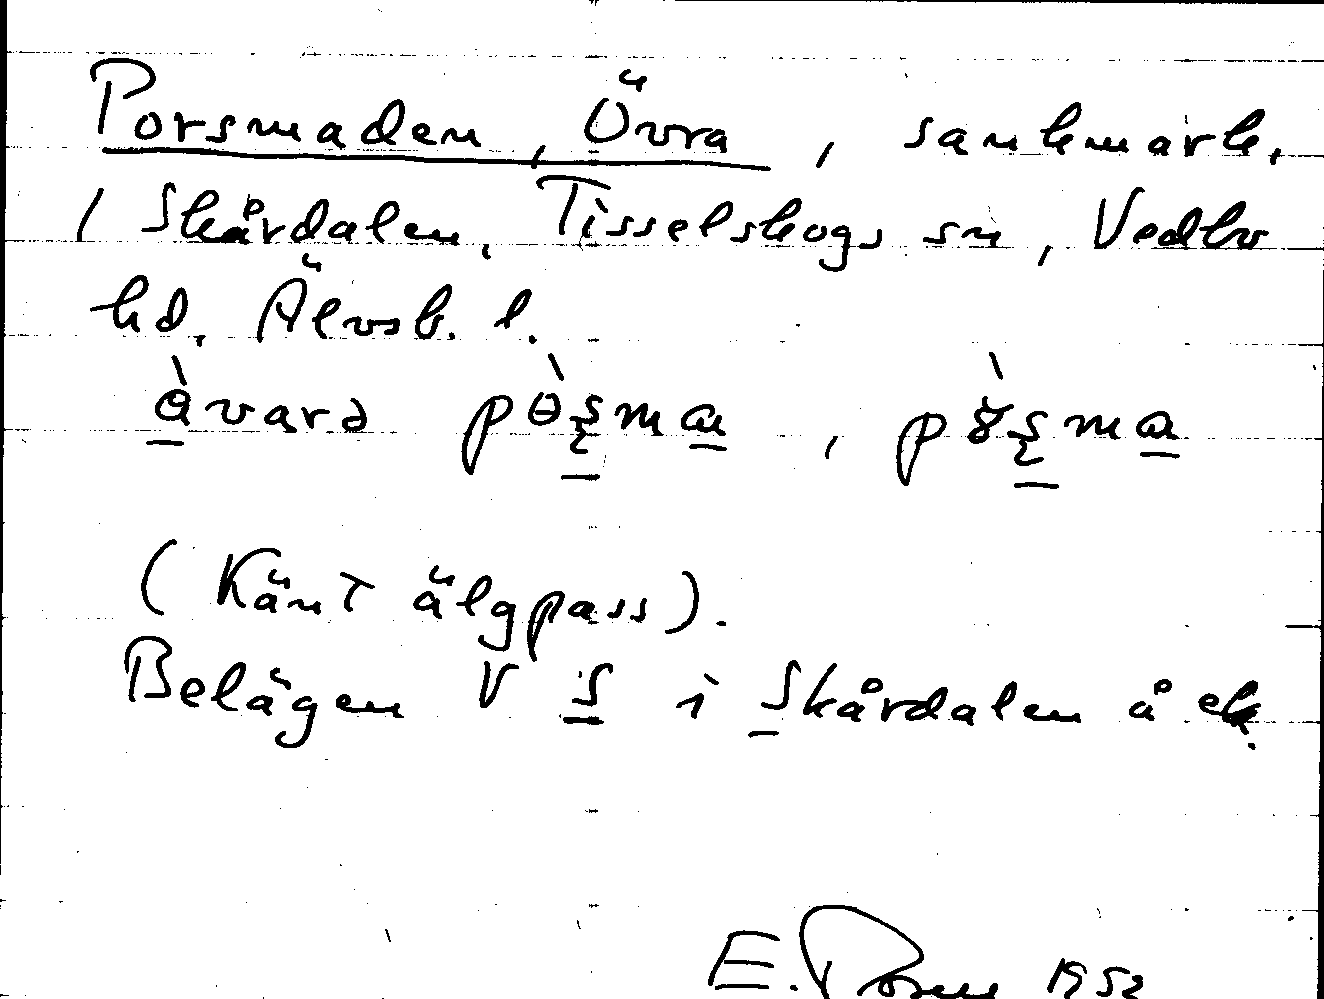 Porsmaden, Övra, sankmark,
i Skårdalen, Tisselskogs sn, Vedbo
hd. Älvsb. l.
àvarə pɵ̀ʂma, pɤ̀ʂma
(Känt älgpass).
Belägen V S i Skårdalen å ek.
E. 1952